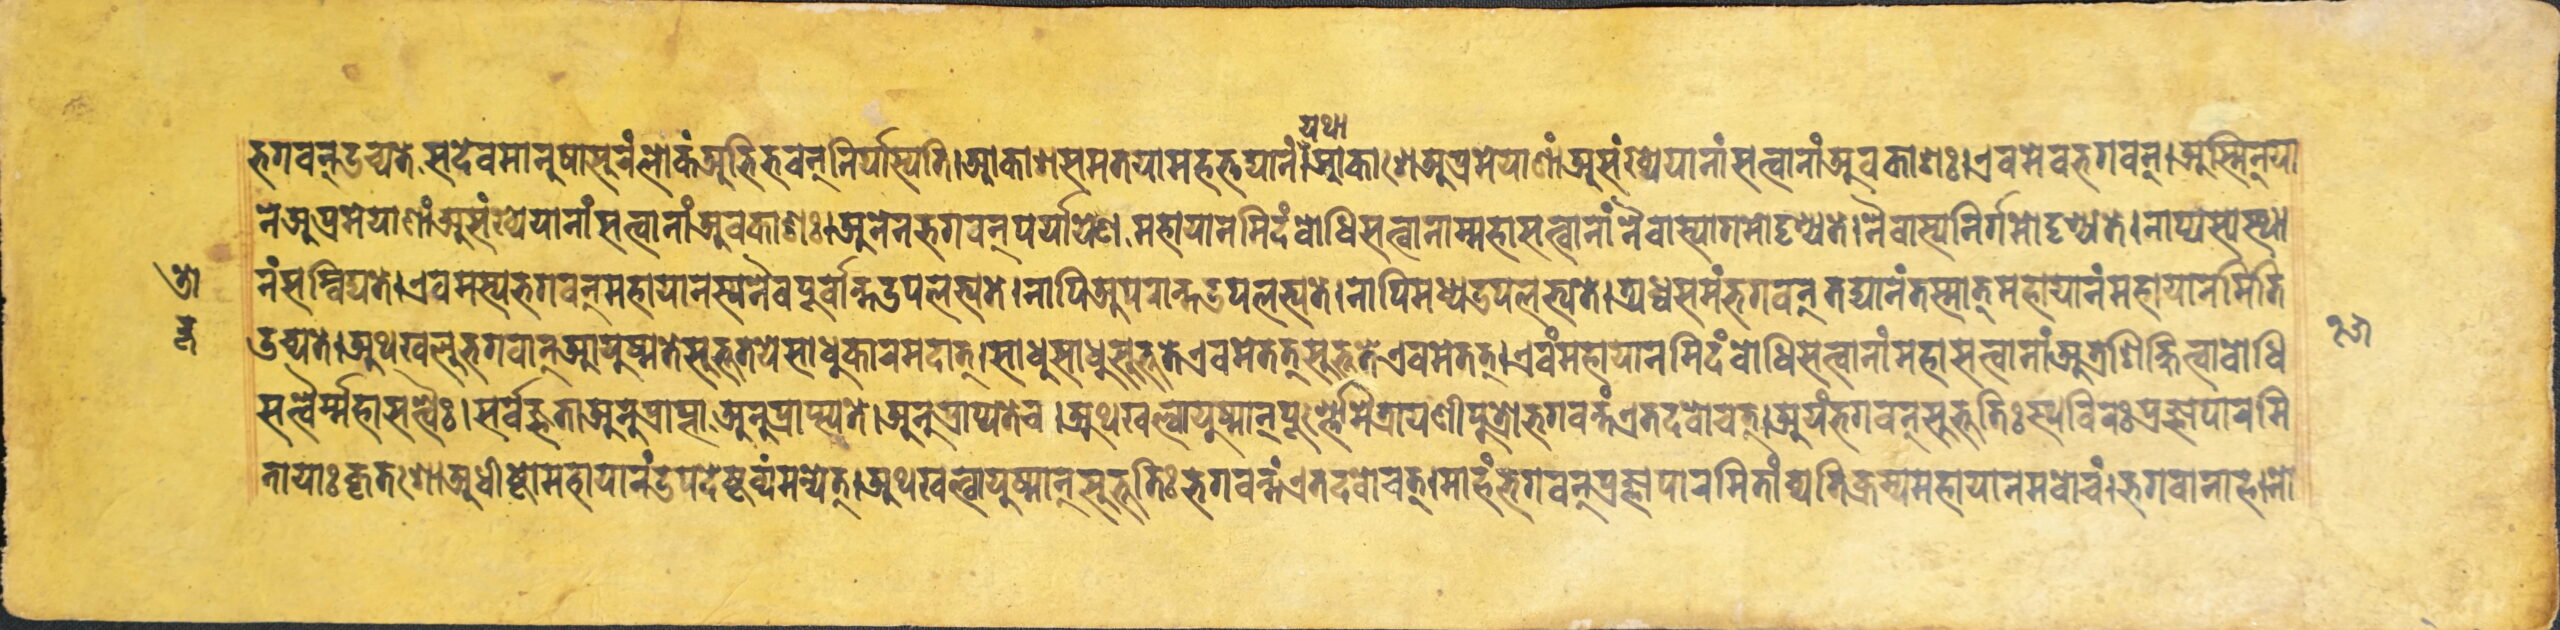 यथा
भगवन्नुच्यते सदेवमानुषासुरं लोकं अभिभवन् निर्यास्यति। आकाशसमतया महत्तद्यानं। आकाशे अप्रमेयाणां असंख्येयानां सत्वानां अवकाशः। एवमेव भगवन्। अस्मिन् या
ने अप्रमेयाणां असंख्येयानां सत्वानां अवकाशः। अनेन भगवन् पर्यायेण महायानमिदं बोधिसत्वानाम्महासत्वानां नैवास्यागमो दृश्यते। नैवास्य निर्गमो दृश्यते। नाप्यस्य स्था
नं सम्विद्यते। एवमस्य भगवन् महायानस्य नैव पूर्वान्त उपलभ्यते। नापि अपरान्त उपलभ्यते। नापि मध्य उपलभ्यते। त्र्यध्वसमं भगवन् तद्यानं तस्मात् महायानं महायानमिति
उच्यते। अथ खलु भगवान् आयुष्मते सुभूतये साधुकारमदात्। साधु साधु सुभूते एवमेतत् सुभूते एवमेतत्। एवं महायानमिदं बोधिसत्वानां महासत्वानां अत्र शिक्षित्वा बोधि
सत्वैर्म्महासत्वैः। सर्वज्ञता अनुप्राप्ता अनुप्राप्स्यते। अनुप्राप्यते च। अथ खल्वायुष्मान् पूर्ण्णो मैत्रायणीपुत्रो भगवन्तं एतदवोचत्। अयं भगवन् सुभूतिः स्थविरः प्रज्ञापारमि
तायाः कृतशो अधीष्टो महायानं उपदेष्टव्यं मन्येत्। अथ खल्वायुष्मान् सुभूतिः भगवन्तं एतदवोचत्। माहं भगवन् प्रज्ञापारमितां व्यतिक्रम्य महायानमवोचं। भगवानाह। नो